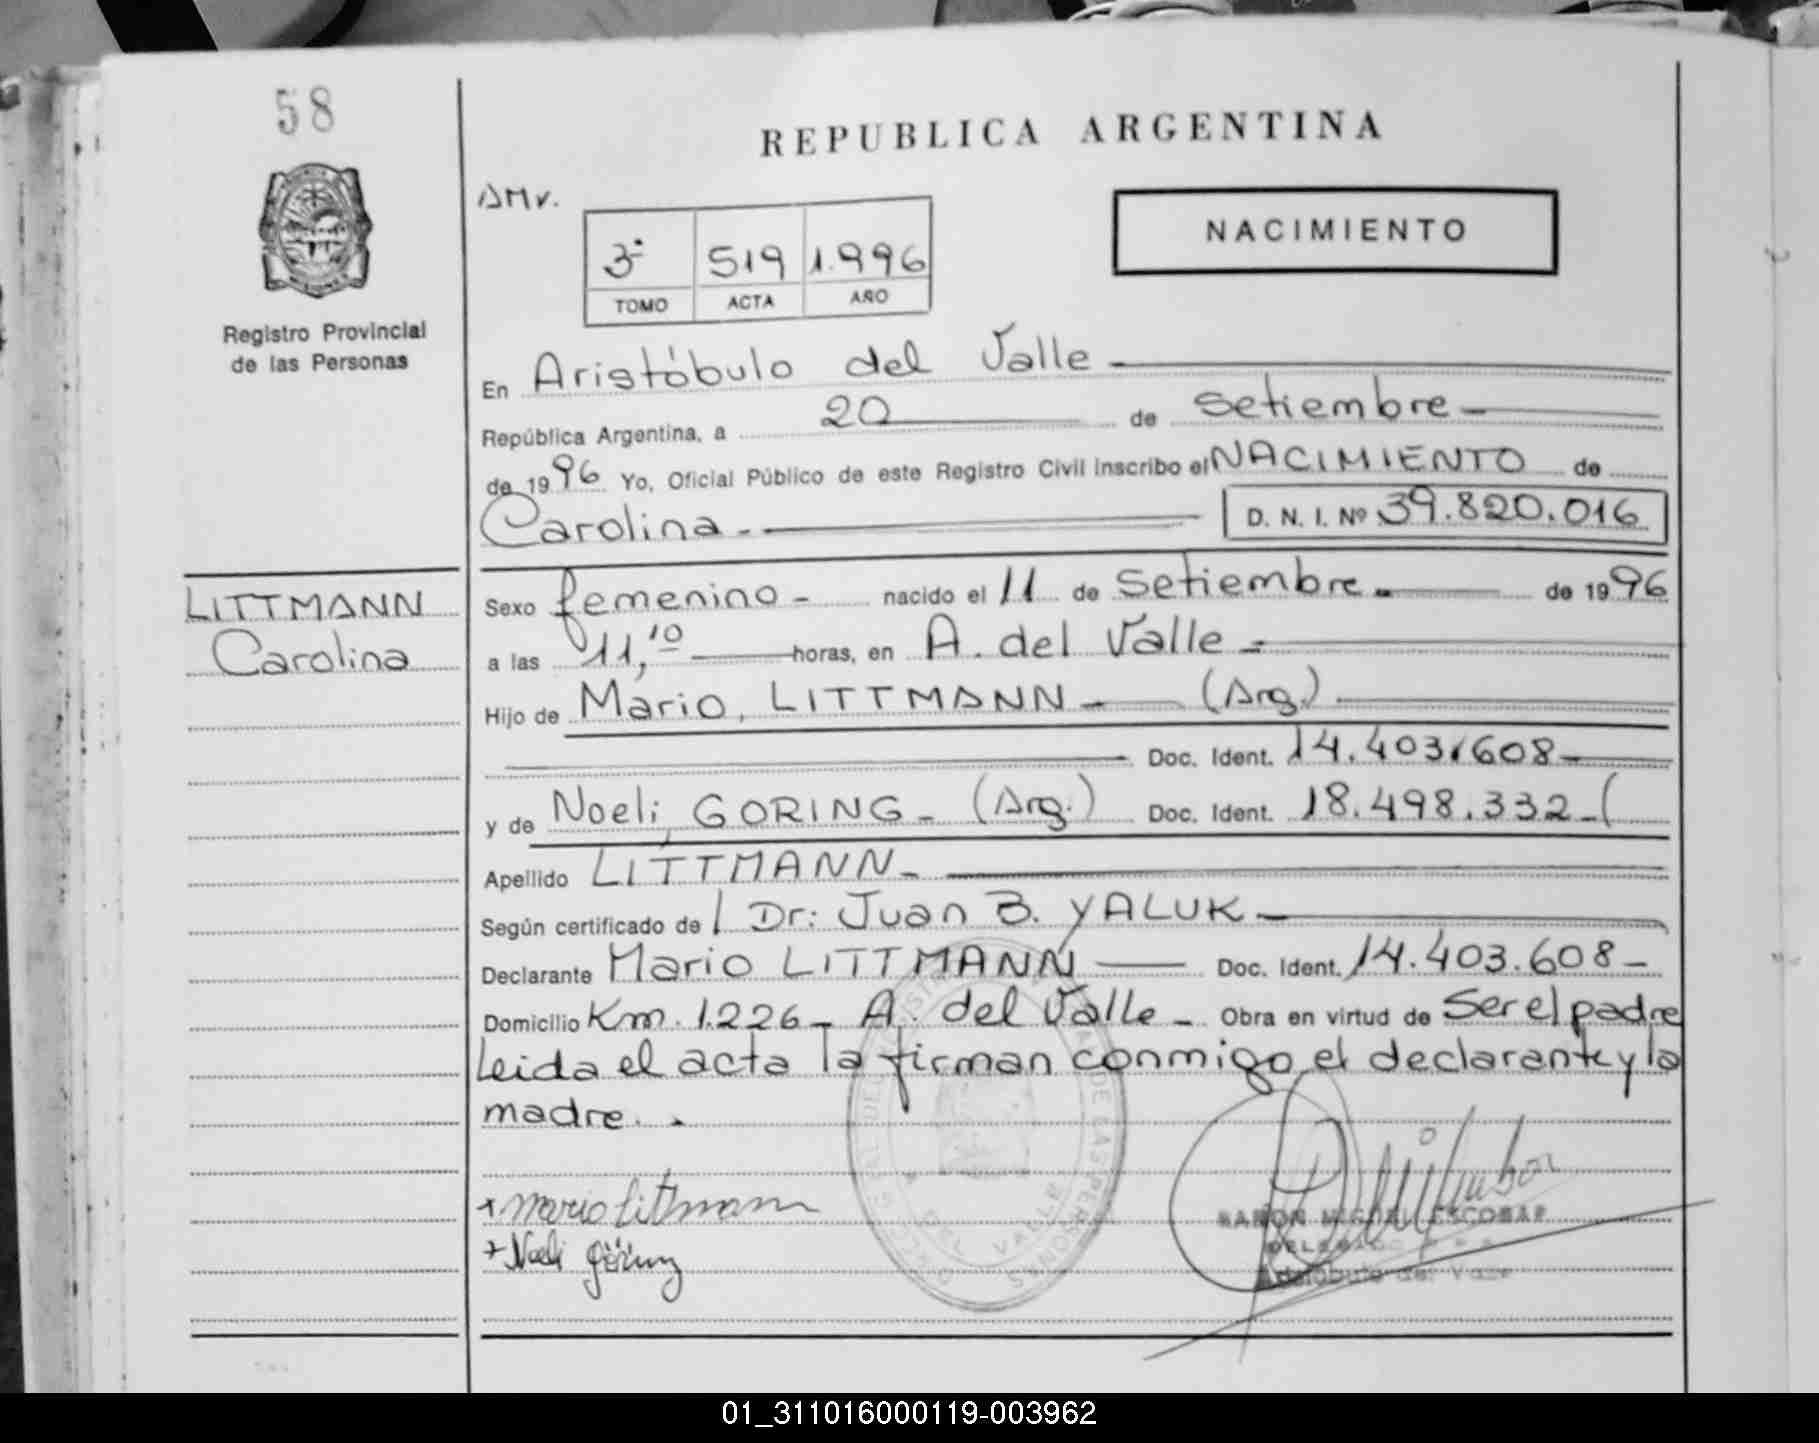 58
REPUBLICA ARGENTINA
AMV.
NACIMIENTO
3º 519 1.996
TOMO ACTA AÑO
Registro Provincial
de las Personas
En Aristóbulo del Valle
República Argentina, a 20 de Setiembre
de 1996 Yo, Oficial Público de este Registro Civil inscribo el NACIMIENTO de
Carolina. D. N. I. Nº 39.820.016
LITTMANN
Carolina
Sexo femenino - nacido el 11 de Setiembre. de 1996
a las 11,10 horas, en A. del Valle
Hijo de Mario, LITTMANN - (Arg.)
Doc. Ident. 14.403.608
y de Noeli, GORING - (Arg.) Doc. Ident. 18.498.332 - (
Apellido LITTMANN -
Según certificado de / Dr: Juan B. YALUK
Declarante Mario LITTMANN Doc. Ident. 14.403.608 -
Domicilio Km. 1.226 - A. del Valle - Obra en virtud de Ser el padre
Leida el acta la firman conmigo el declarante y la
madre. -
+ Mario Littmann
+ Noeli Göring
RAMON MIGUEL ESCOBAR
Aristóbulo del Valle
DEL VALLE
01_311016000119-003962